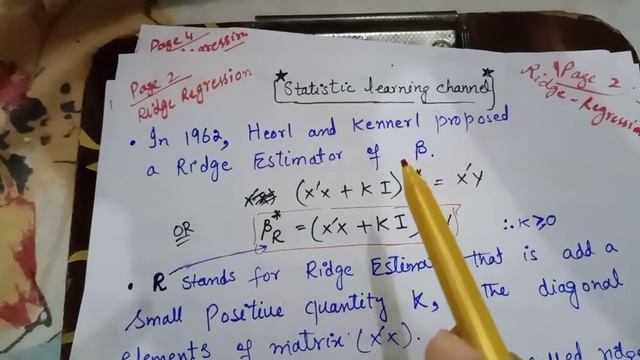 Page 4
Page 2
Ridge Regression
Statistic learning channel
Page 2
Ridge-Regression
• In 1962, Heorl and Kennerl proposed
a Ridge Estimator of β.
(X'X + K I) = X'Y
OR
β*R = (X'X + K I
∴ K ≥ 0
• R stands for Ridge that is add a
small positive quantity K, the diagonal
elements of matrix (X'X).